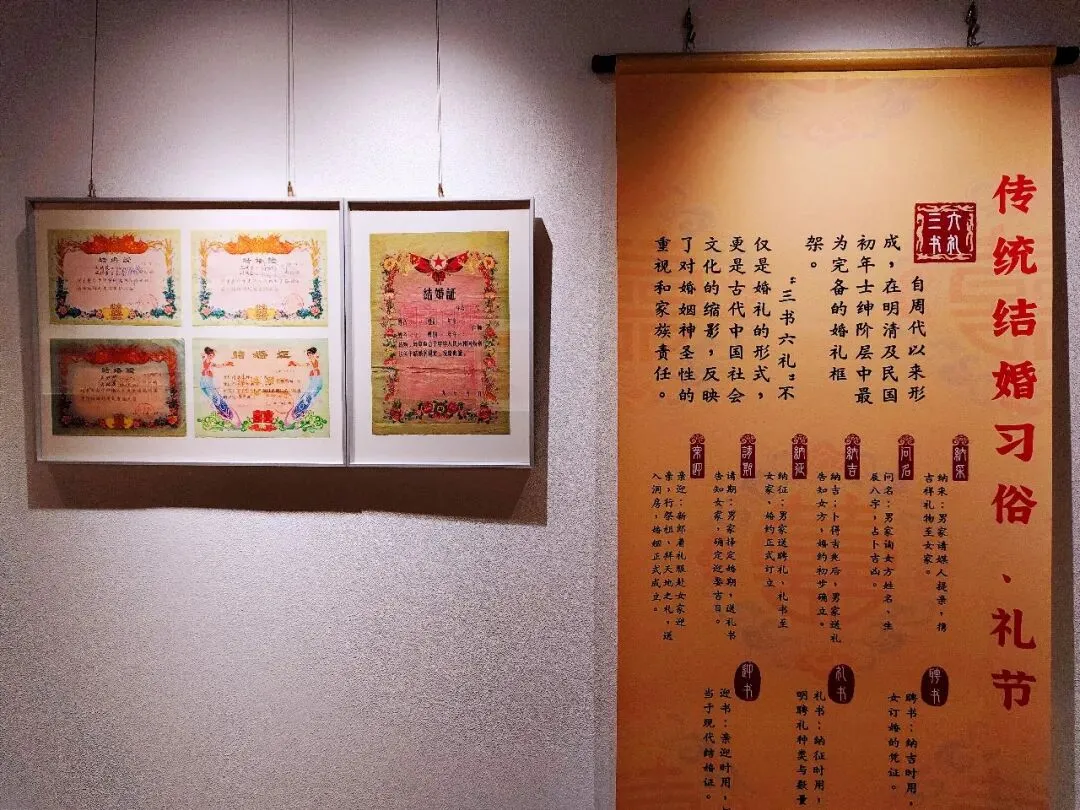 结婚证
结婚证
结婚证
结婚证
结婚証
传统结婚习俗、礼节
三书
六礼
自周代以来形
成，在明清及民国
初年士绅阶层中最
为完备的婚礼框
架。
“三书六礼”不
仅是婚礼的形式，
更是古代中国社会
文化的缩影，反映
了对婚姻神圣性的
重视和家族责任。
納采
纳采：男家请媒人提亲，携
吉祥礼物至女家。
问名
问名：男家询女方姓名、生
辰八字，占卜吉凶。
納吉
纳吉：卜得吉兆后，男家送礼
告知女方，婚约初步确立。
納征
纳征：男家送聘礼、礼书至
女家，婚约正式订立
請期
请期：男家择定婚期，送礼书
告知女家，确定迎娶吉日。
亲迎
亲迎：新郎着礼服赴女家迎
亲，行祭祖、拜天地之礼，送
入洞房，婚姻正式成立。
聘书
聘书：纳吉时用，
女订婚的凭证。
礼书
礼书：纳征时用，
明聘礼种类与数量
迎书
迎书：亲迎时用，
当于现代结婚证。